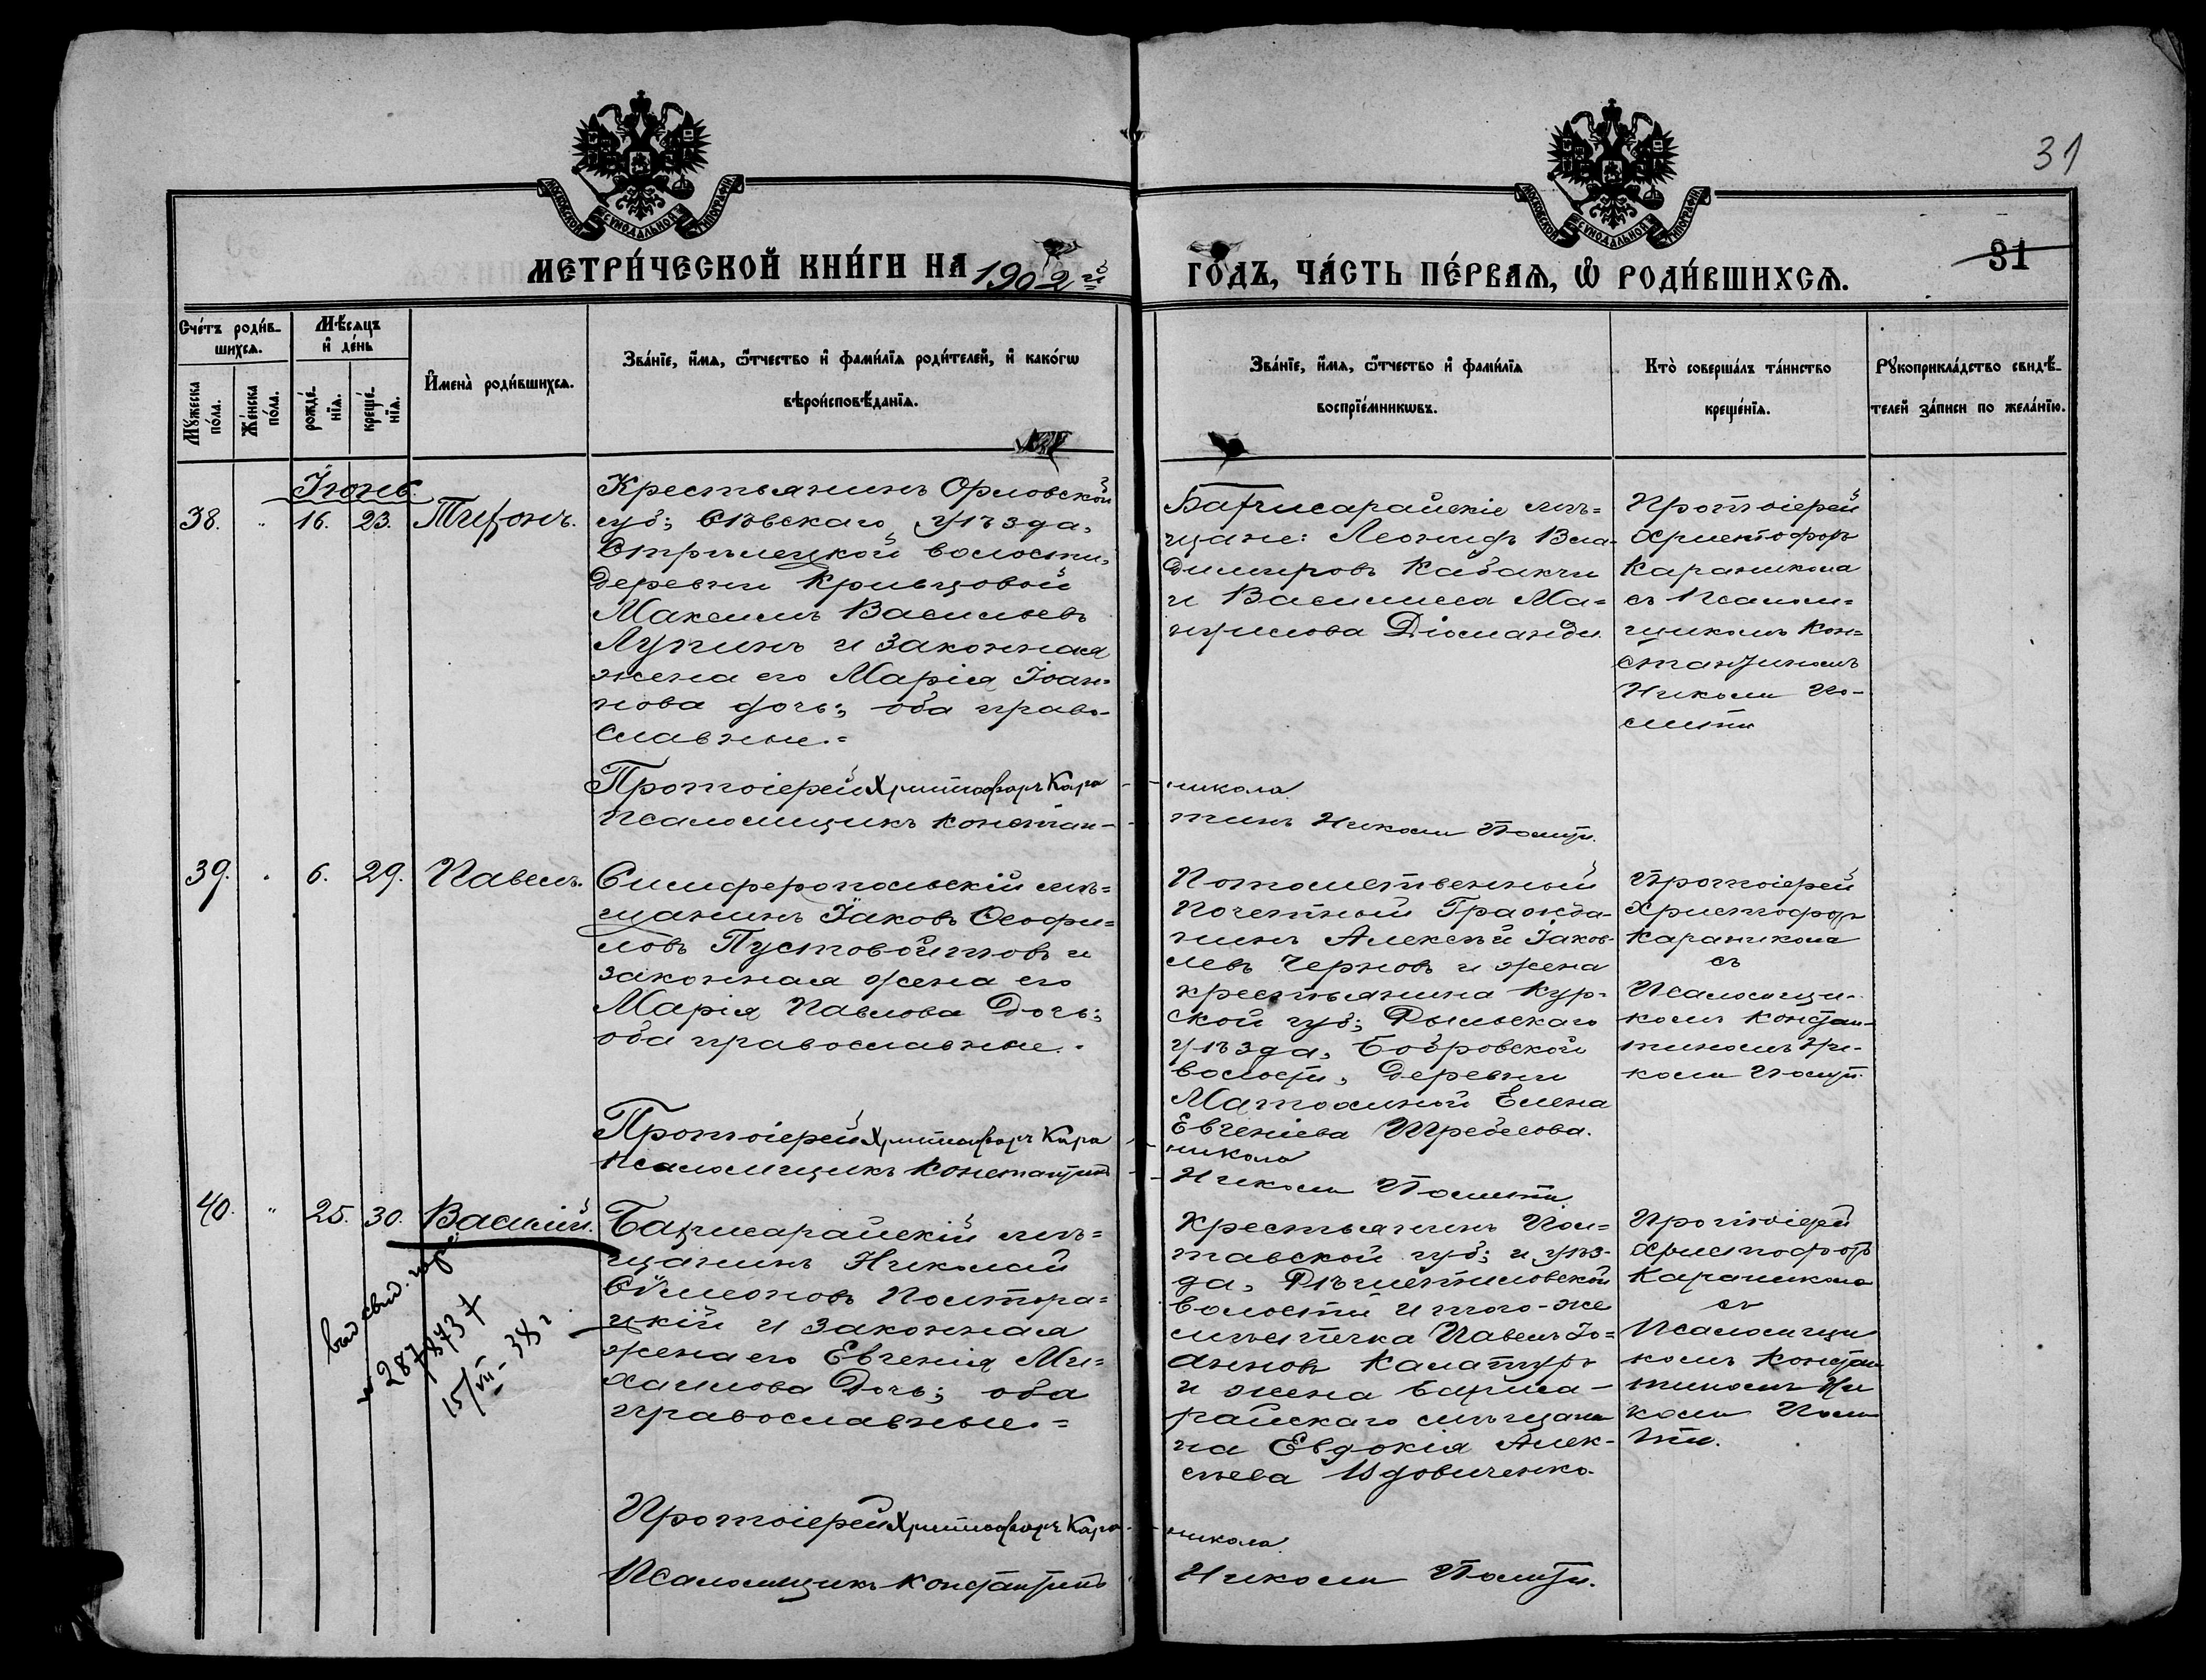 31
МОСКОВСКОЙ СѴНОДАЛЬНОЙ ТИПОГРАФІИ
МОСКОВСКОЙ СѴНОДАЛЬНОЙ ТИПОГРАФІИ
МЕТРИ́ЧЕСКОЙ КНИ́ГИ НА 1902 й
ГО́ДЪ, ЧА́СТЬ ПЕ́РВАЯ, Ѽ РОДИ́ВШИХСѦ.
31
Сче́тъ роди́в-
шихсѧ.
Мѣ́сѧцъ
и҆ де́нь
Мꙋ́жеска
по́ла.
Же́нска
по́ла.
рожде́-
нїѧ.
креще́-
нїѧ.
И҆мена̀ роди́вшихсѧ.
Зва́нїе, и҆́мѧ, ѻ҆́тчество и҆ фамѝлїѧ роди́телей, и҆ како́гѡ
вѣроисповѣ́данїѧ.
Зва́нїе, и҆́мѧ, ѻ҆́тчество и҆ фами́лїѧ
воспрїе́мникѡвъ.
Кто̀ соверша́лъ та́инство
креще́нїѧ.
Рꙋкоприкла́дство свидѣ́-
телей за́писи по жела́нїю.
Іюнь.
38. " 16. 23. Тифонъ.
Крестьянинъ Орловской
губ; Сѣвскаго уѣзда,
Стрѣлецкой волости,
деревни Кривцовой
Максимъ Васильевъ
Лупинъ и законная
жена его Марія Іоан-
нова дочь; оба право-
славные.=
Бахчисарайскіе мѣ=
щане: Леонидъ Вла-
димировъ Кабакчи
и Василиса Ма=
нуилова Діоманди
Протоіерей
Христофоръ
Караникола
съ Псалом=
щикомъ Кон=
стантиномъ
Никоми По-
лити
Протоіерей Христофоръ Кара-
-никола
Псаломщикъ Констан-
тинъ Николи Полити.
39. " 6. 29. Павелъ.
Симферопольскій мѣ=
щанинъ Іаковъ Ѳеофи=
ловъ Пустовойтовъ и
законная жена его
Марія Павлова дочь;
оба православные.
Потомственный
Почетный Гражда-
нинъ Алексѣй Іаков-
левъ Черновъ и жена
крестьянина Кур-
ской губ; Рыльскаго
уѣзда, Бобровской
волости, деревни
Елена
Евгеніева
Протоіерей
Христофоръ
Караникола
съ
Псаломщи-
комъ Констан-
тиномъ Ни-
коли Полити
Протоіерей Христофоръ Кара
-никола
Псаломщикъ Константинъ
Николи Полити
40. " 25. 30. Василій.
Бахчисарайскій мѣ=
щанинъ Николай
Сѵмеоновъ Полтора=
цкій и законная
жена его Евгенія Ми=
хаилова дочь; оба
православные.=
Крестьянинъ Пол=
тавской губ; и уѣз-
да,
волости и того-же
мѣстечка Павелъ Іо=
анновъ Калатуръ
и жена Бахчиса-
райскаго мѣщани
на Евдокія Алек-
сѣева Удовиченко.
Протоіерей
Христофоръ
Караникола
съ
Псаломщи
комъ Констан
тиномъ Ни
коли Поли
ти.
выд. свид.
№ 287873
15/VII - 38 г
Протоіерей Христофоръ Кара-
-никола.
Псаломщикъ Константинъ
Николи Полити.